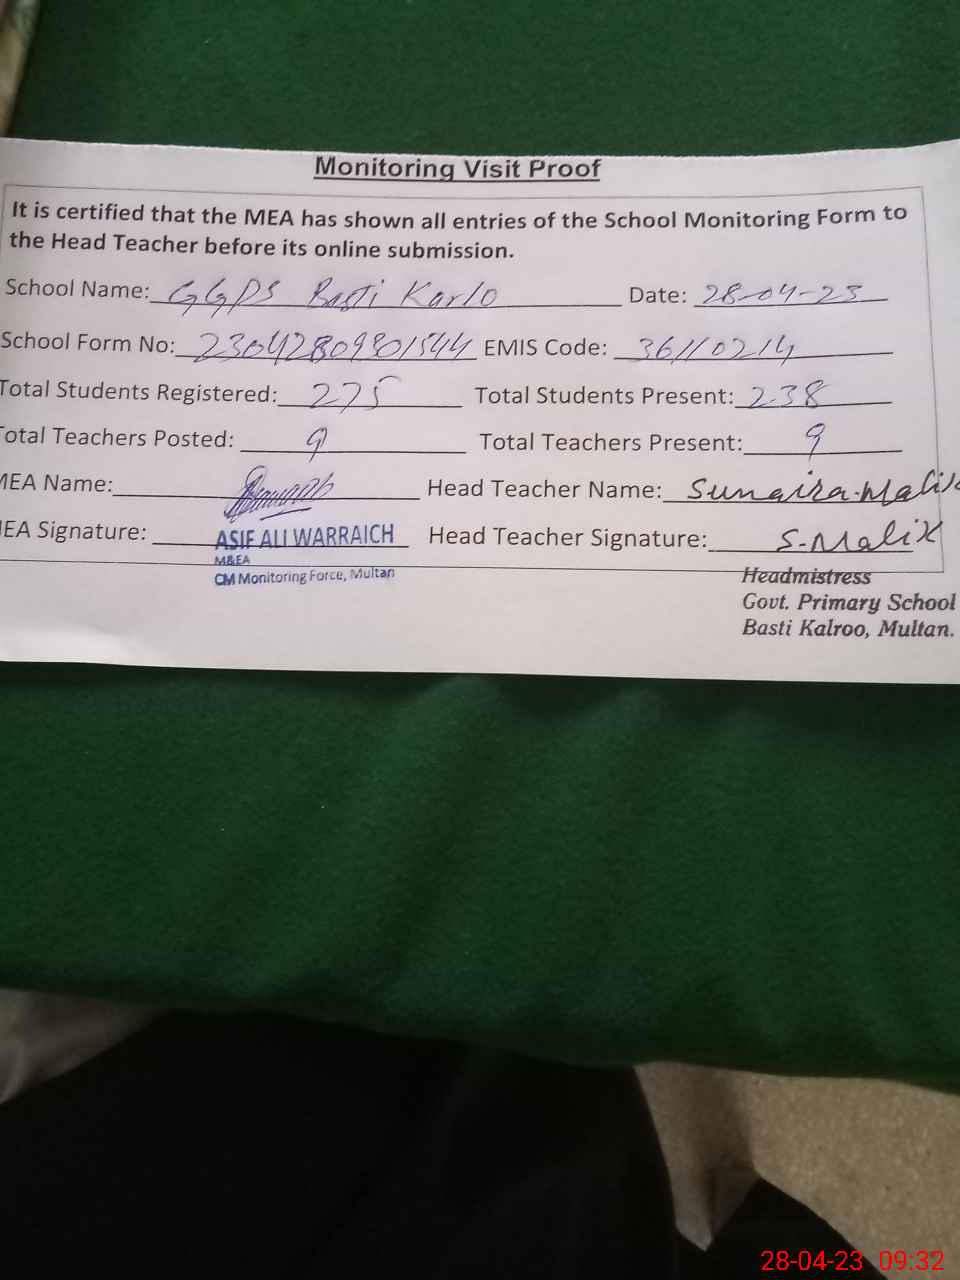 Monitoring Visit Proof
It is certified that the MEA has shown all entries of the School Monitoring Form to
the Head Teacher before its online submission.
School Name: GGPS Basti Karlo Date: 28-04-23
School Form No: 23042809301544 EMIS Code: 36110214
Total Students Registered: 275 Total Students Present: 238
Total Teachers Posted: 9 Total Teachers Present: 9
MEA Name: Head Teacher Name: Sunaira Malik
MEA Signature: ASIF ALI WARRAICH Head Teacher Signature: S-Malik
M&EA
CM Monitoring Force, Multan
Headmistress
Govt. Primary School
Basti Kalroo, Multan.
28-04-23 09:32